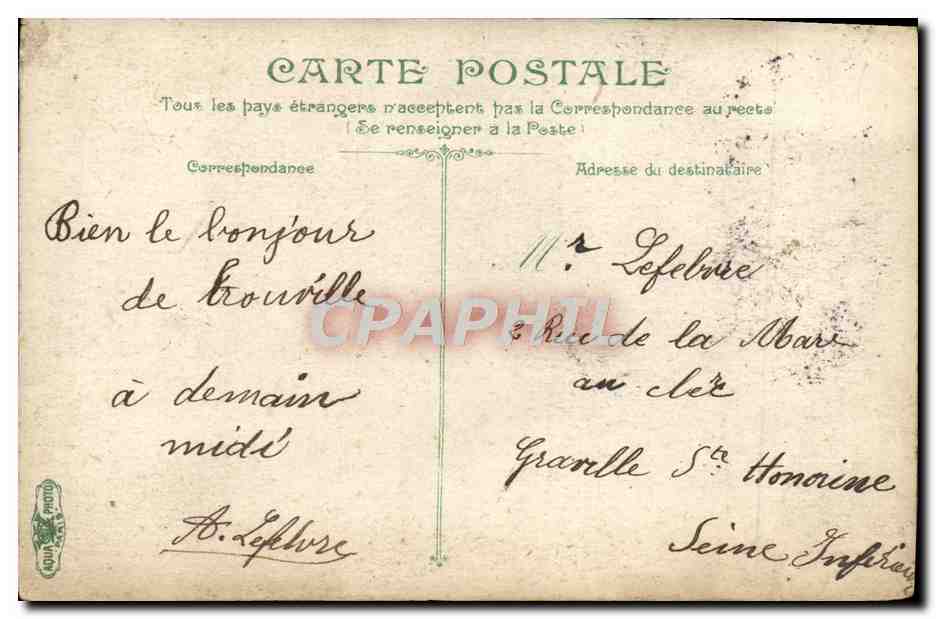 CARTE POSTALE
Tous les pays étrangers n'acceptent pas la Correspondance au recto
(Se renseigner a la Poste)
Correspondance
Bien le bonjour
de trouville
à demain
midi
A. Lefebvre
AQUA PHOTO
PARIS
Adresse du destinataire
Mr. Lefebvre
2 Rue de la Mare
au clerc
Graville Ste Honorine
Seine Inférieure
CPAPHIL